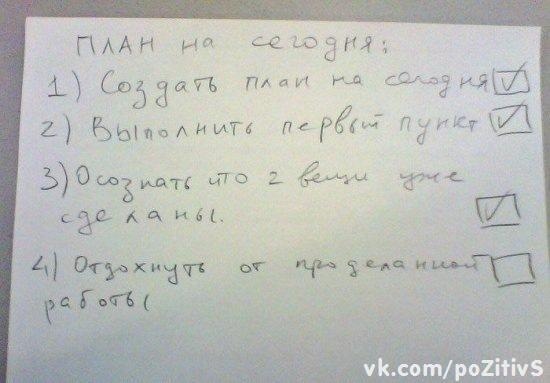 ПЛАН на сегодня:
1) Создать план на сегодня
2) Выполнить первый пункт
3) Осознать что 2 вещи уже
сделаны.
4) Отдохнуть от проделанной
работы
vk.com/poZitivS